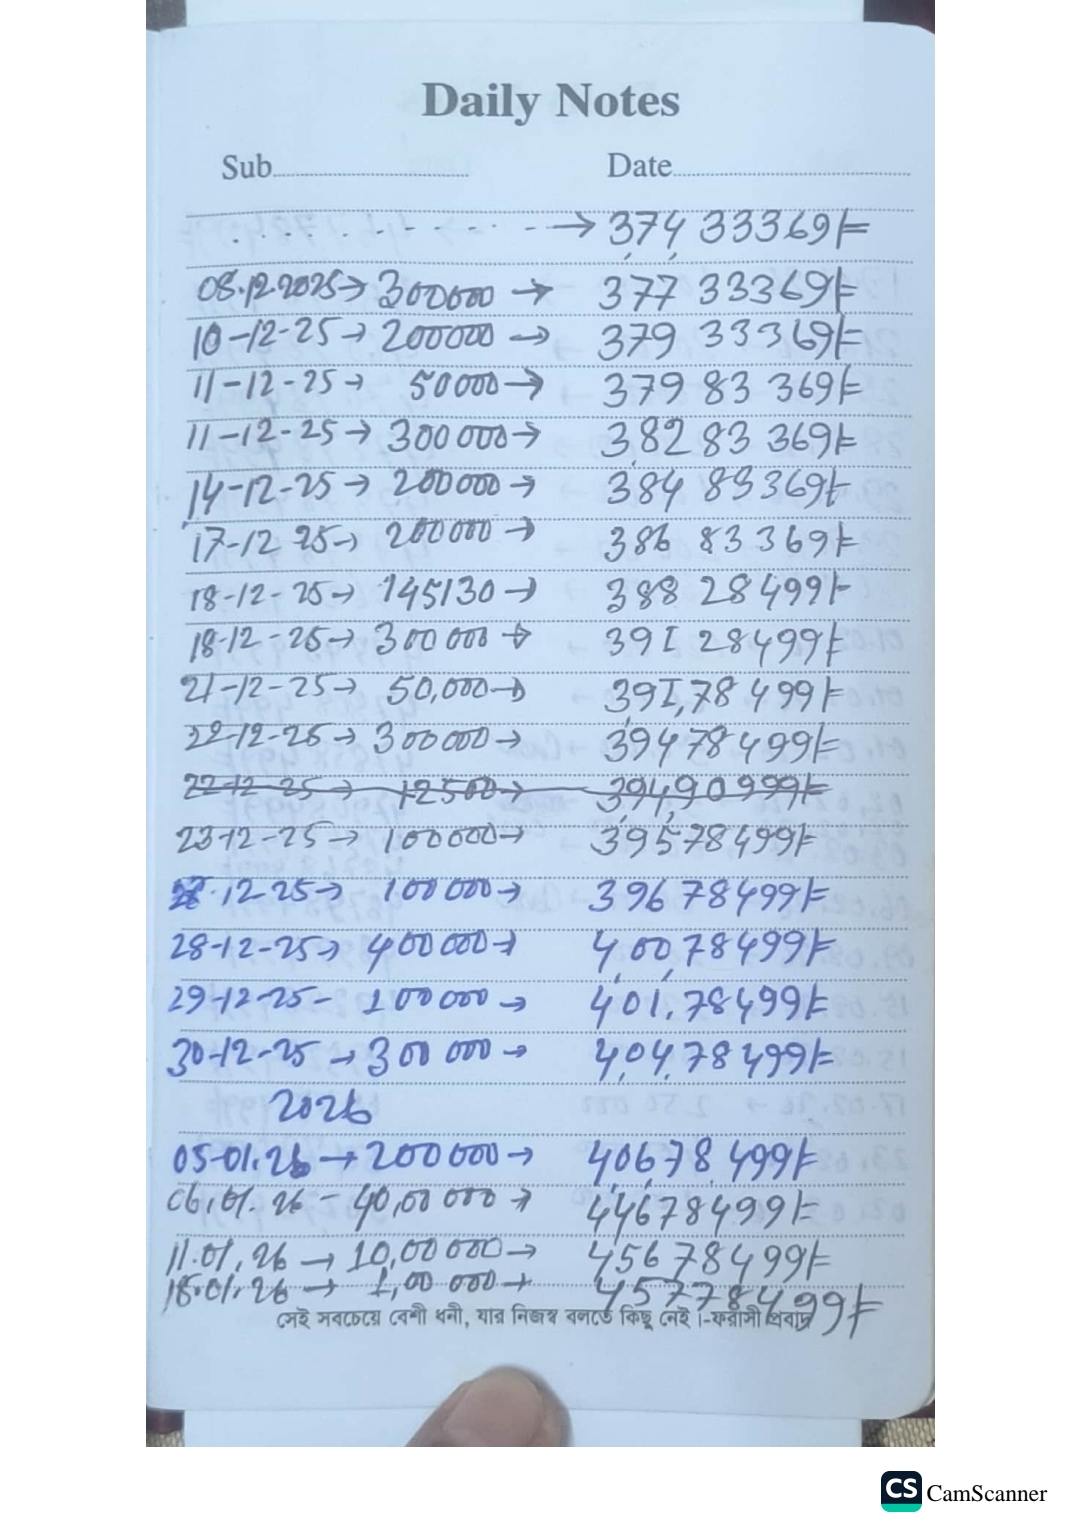 Daily Notes
Sub.................... Date....................
. . . . . - - - - - → 374,33369/=
08.12.2025→ 300000 → 37733369/=
10-12-25 → 200000 → 37933369/=
11-12-25 → 50000 → 37983369/=
11-12-25 → 300000 → 38283369/=
14-12-25 → 200000 → 38483369/=
17-12 25→ 200000 → 38683369/=
18-12-25→ 145130 → 38828499/=
18-12-25→ 300000 → 39128499/=
21-12-25→ 50,000→ 391,78499/=
22-12-25→ 300000→ 39478499/=
22-12-25→ 12500→ 39490999/=
23-12-25→ 100000→ 39578499/=
12-25→ 100000→ 39678499/=
28-12-25→ 400000→ 4,00,78499/=
29-12-25- 100000→ 401,78499/=
30-12-25→ 300000→ 4,04,78499/=
2026
05-01.26→ 200000→ 4,06,78,499/=
06.01.26 - 40,00000→ 44678499/=
11.01.26→ 10,00000→ 45678499/=
18.01.26→ 1,00000→ 45778499/=
সেই সবচেয়ে বেশী ধনী, যার নিজস্ব বলতে কিছু নেই।-ফরাসী প্রবাদ
CS CamScanner